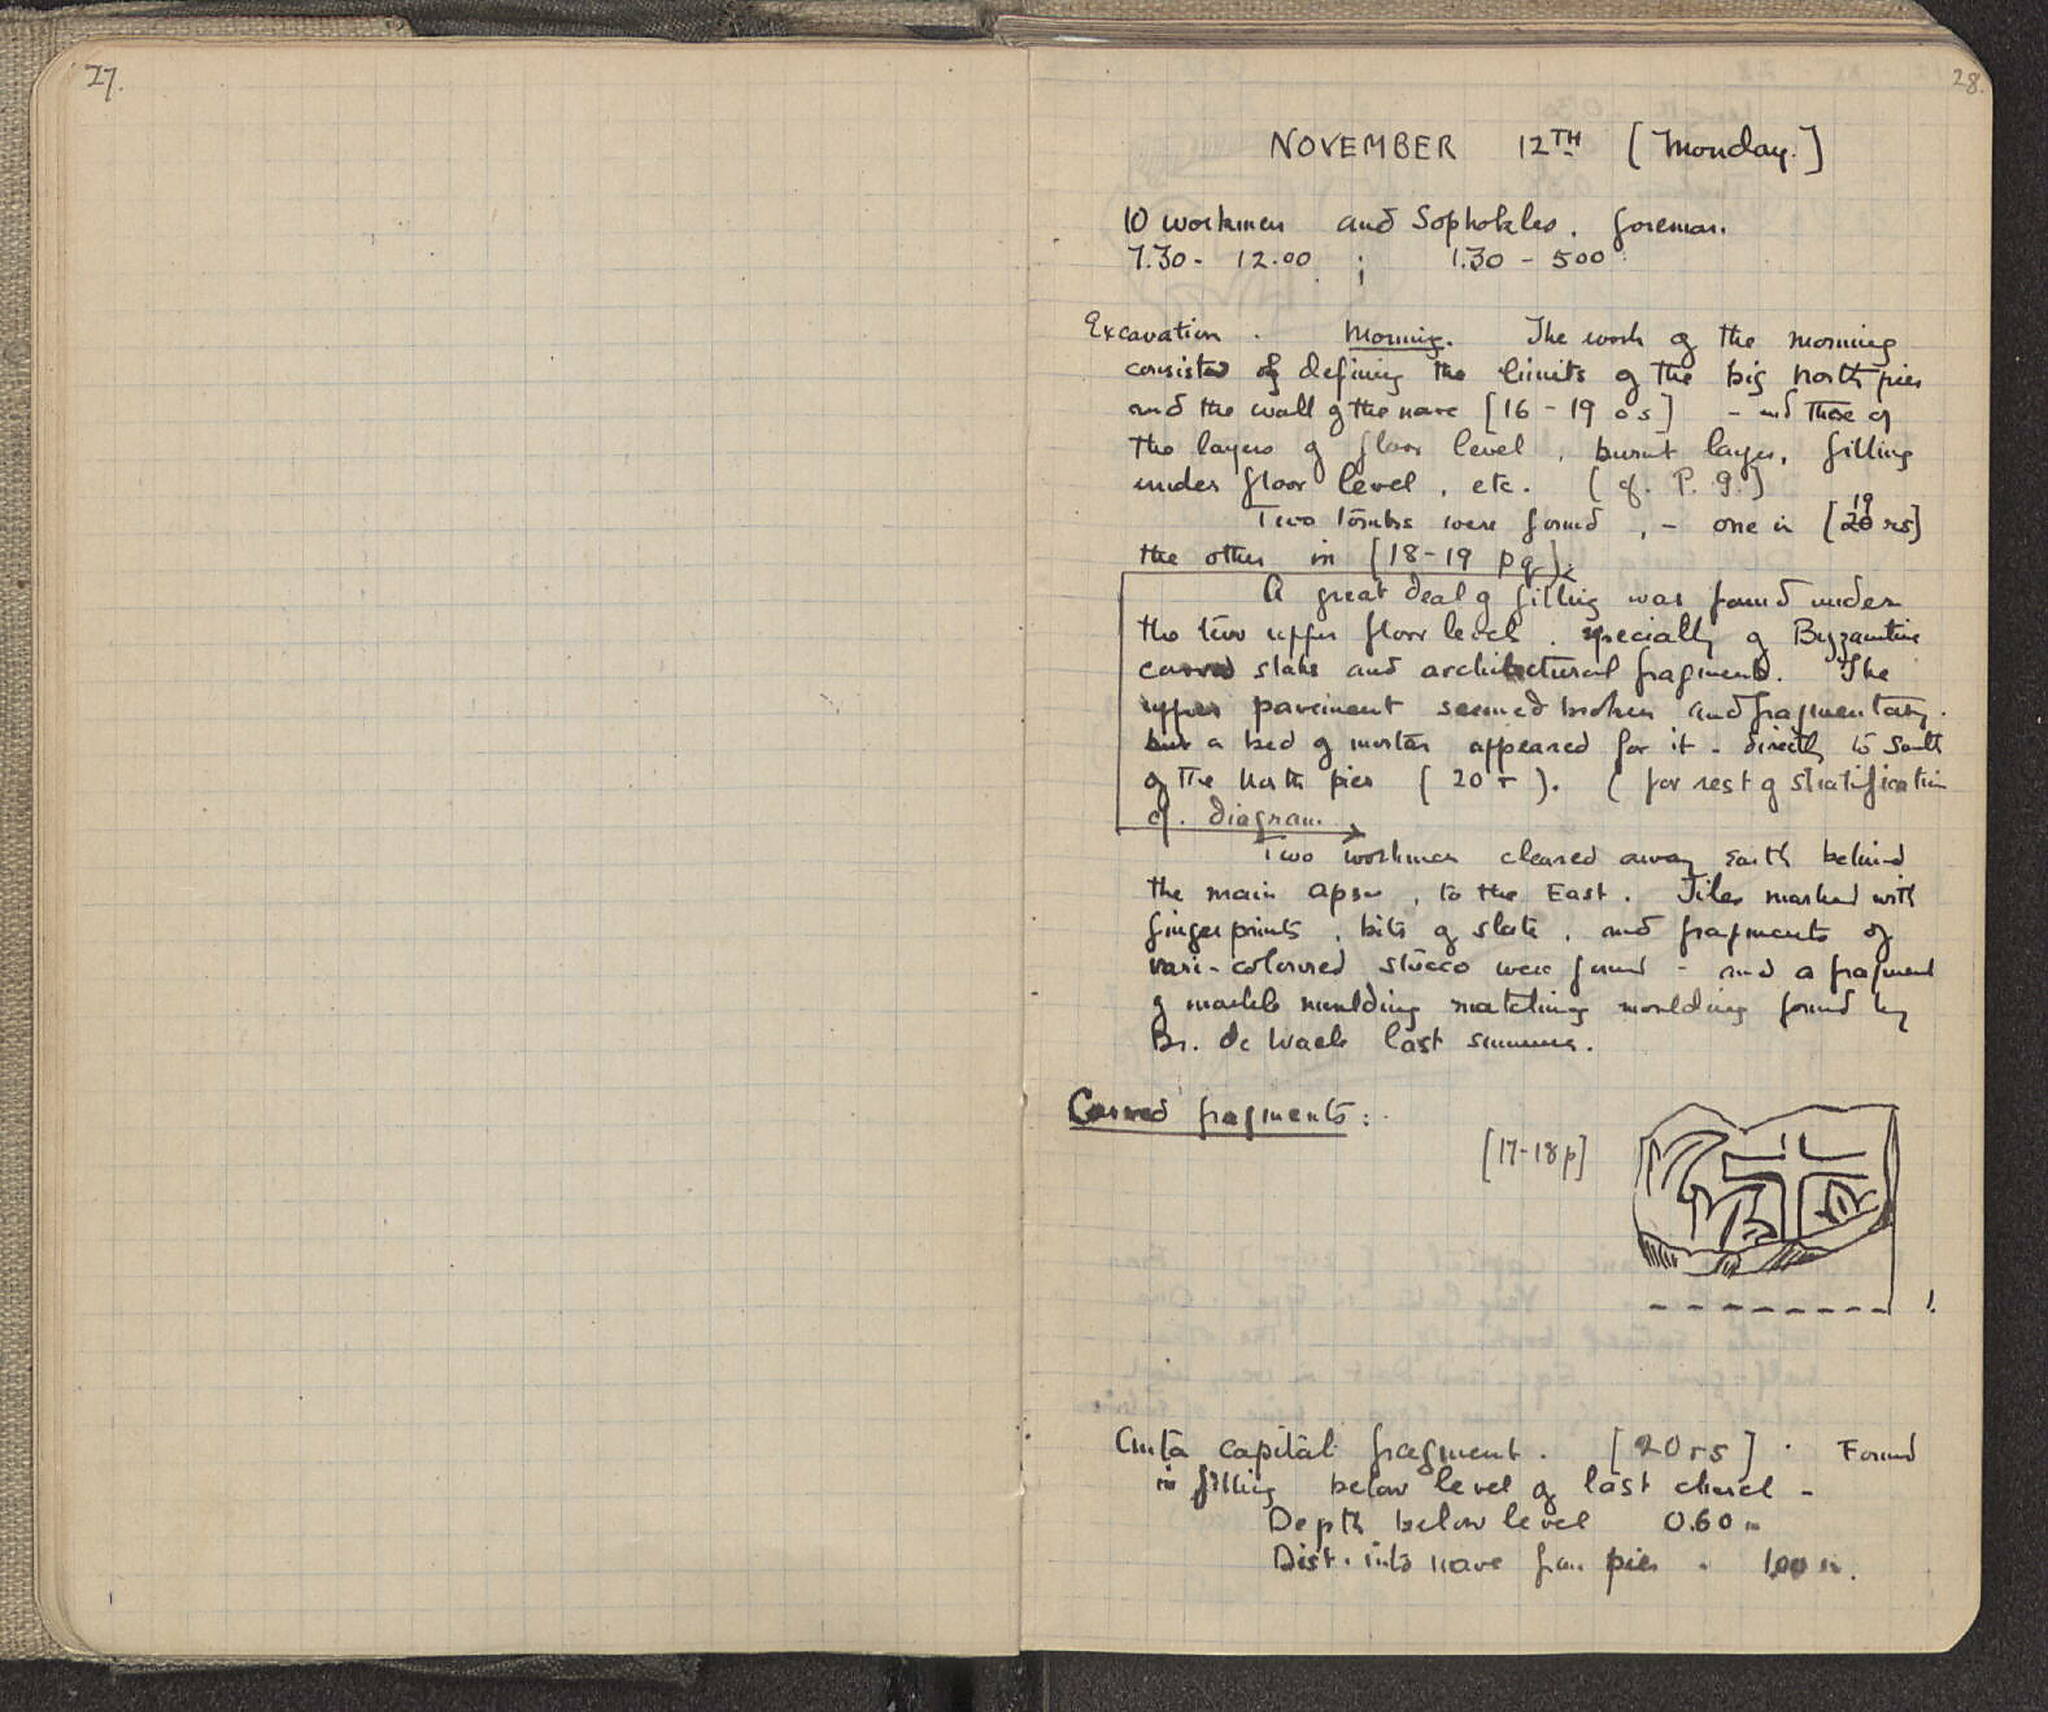 27.
28.
NOVEMBER 12TH [Monday.]
10 workmen and Sophokles, foreman.
7.30 - 12.00 ; 1.30 - 500
Excavation. Morning. The work of the morning
consisted of defining the limits of the big North pier
and the wall of the nave [16 - 19 os] - and those of
the layers of floor level, burnt layer, filling
under floor level, etc. (cf. P. 9.)
19
Two tombs were found, - one in [20 rs]
the other in [18-19 pq].
A great deal of filling was found under
the two upper floor levels. specially of Byzantine
carved slabs and architectural fragments. The
upper pavement seemed broken and fragmentary.
but a bed of mortar appeared for it - directly to South
of the North pier (20 r). (for rest of stratification
cf. diagram.
Two workmen cleared away earth behind
the main apse, to the East. Tiles marked with
fingerprints, bits of slate, and fragments of
vari-coloured stucco were found - and a fragment
of marble moulding matching moulding found by
Br. de Waele last summer.
Carved fragments:
[17-18p]
1.
capital fragment. [20 rs]. Found
in filling below level of last church -
Depth below level 0.60 m
Dist. into nave from pier - 1.00 m.